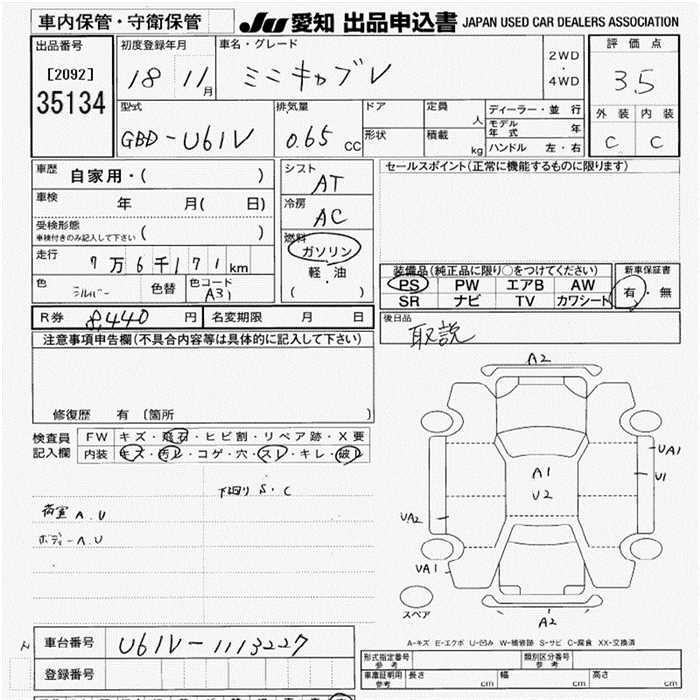 車内保管・守衛保管 JU 愛知 出品申込書 JAPAN USED CAR DEALERS ASSOCIATION
出品番号 [2092] 35134
初度登録年月 18 11月
車名・グレード ミニキャブV
2WD・4WD
評価点 3.5
外装 内装
C C
型式 GBD-U61V
排気量 0.65 CC
ドア 形状
定員 人
積載 kg
ディーラー・並行
モデル年式 年
ハンドル 左・右
車歴 自家用・( )
車検 年 月( 日)
受検形態 車検付きのみ記入して下さい ( )
走行 7万6千171km
色 シルバー 色替 色コード A31
シフト AT
冷房 AC
燃料 ガソリン
軽・油
( )
セールスポイント(正常に機能するものに限ります)
装備品(純正品に限り○をつけてください)
PS PW エアB AW
SR ナビ TV カワシート
新車保証書
有・無
R券 8,440円 名変期限 月 日
後日品 取説
注意事項申告欄(不具合内容等は具体的に記入して下さい)
修復歴 有 〔箇所 〕
検査員記入欄
FW キズ・飛石・ヒビ割・リペア跡・X要
内装 キズ・汚レ・コゲ・穴・スレ・キレ・破レ
下回り S・C
荷室 A.U
ボディーA.U
A2
UA1
U1
A1
U2
UA2
UA1
A2
スペア
A-キズ E-エクボ U-凹み W-補修跡 S-サビ C-腐食 XX-交換済
車台番号 U61V-1113227
登録番号
型式指定番号 参考 類別区分番号 参考
車庫証明用 参考 長さ cm 幅 cm 高さ cm